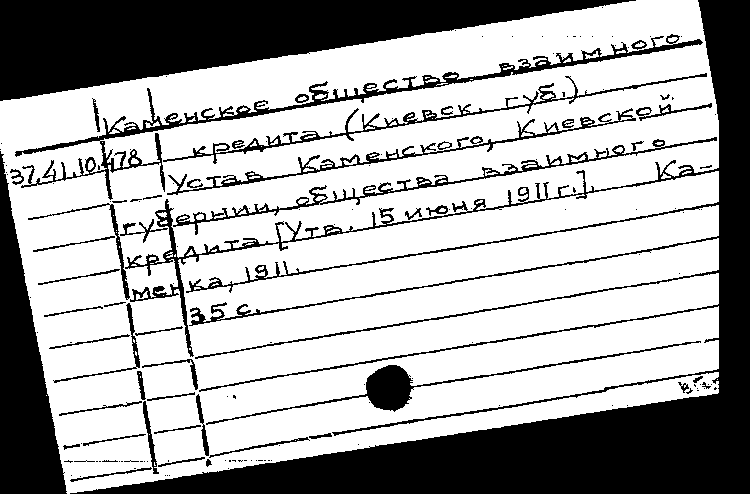 Каменское общество взаимного
кредита. (Киевск. губ.).
37.41.10.478
Устав Каменского, Киевской
губернии, общества взаимного
кредита. [Утв. 15 июня 1911 г.]. Ка-
менка, 1911.
35 с.